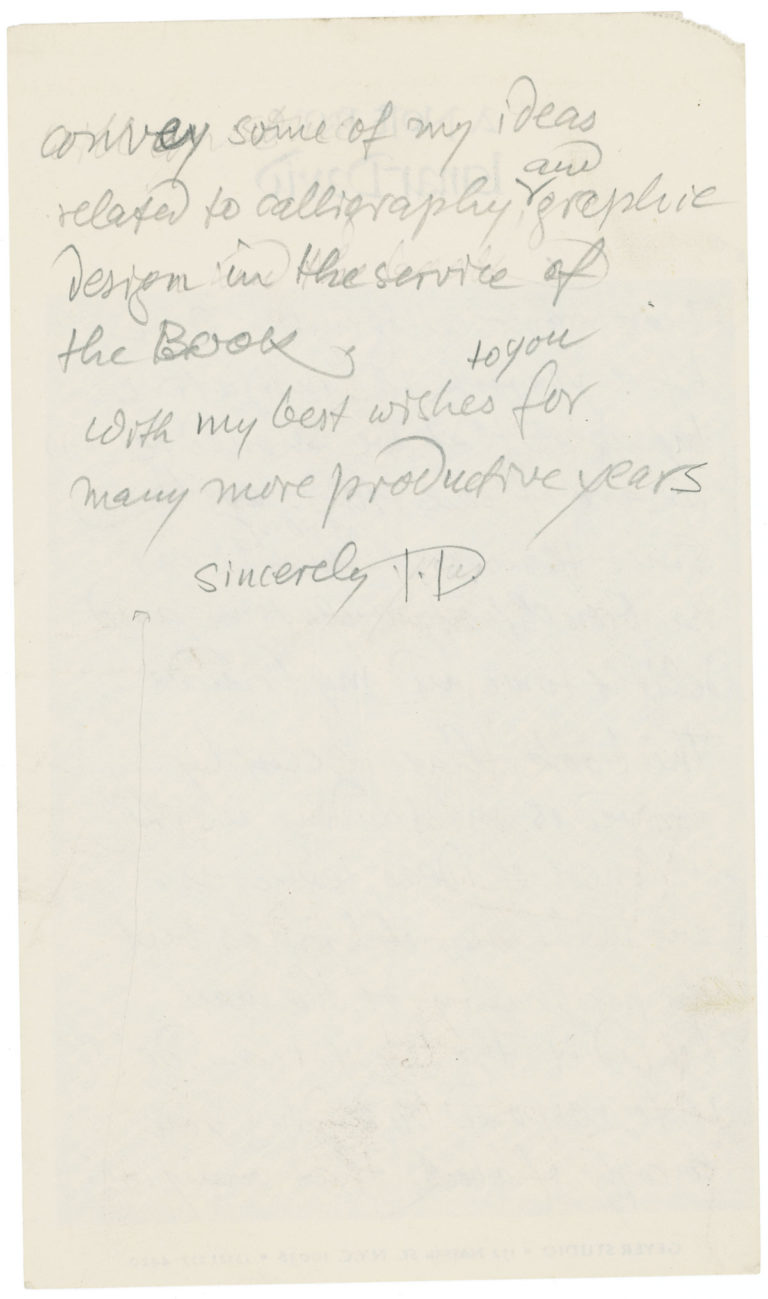 convey some of my ideas
and
related to calligraphy, graphic
design in the service of
the Book,
to you
with my best wishes for
many more productive years
sincerely I.D.